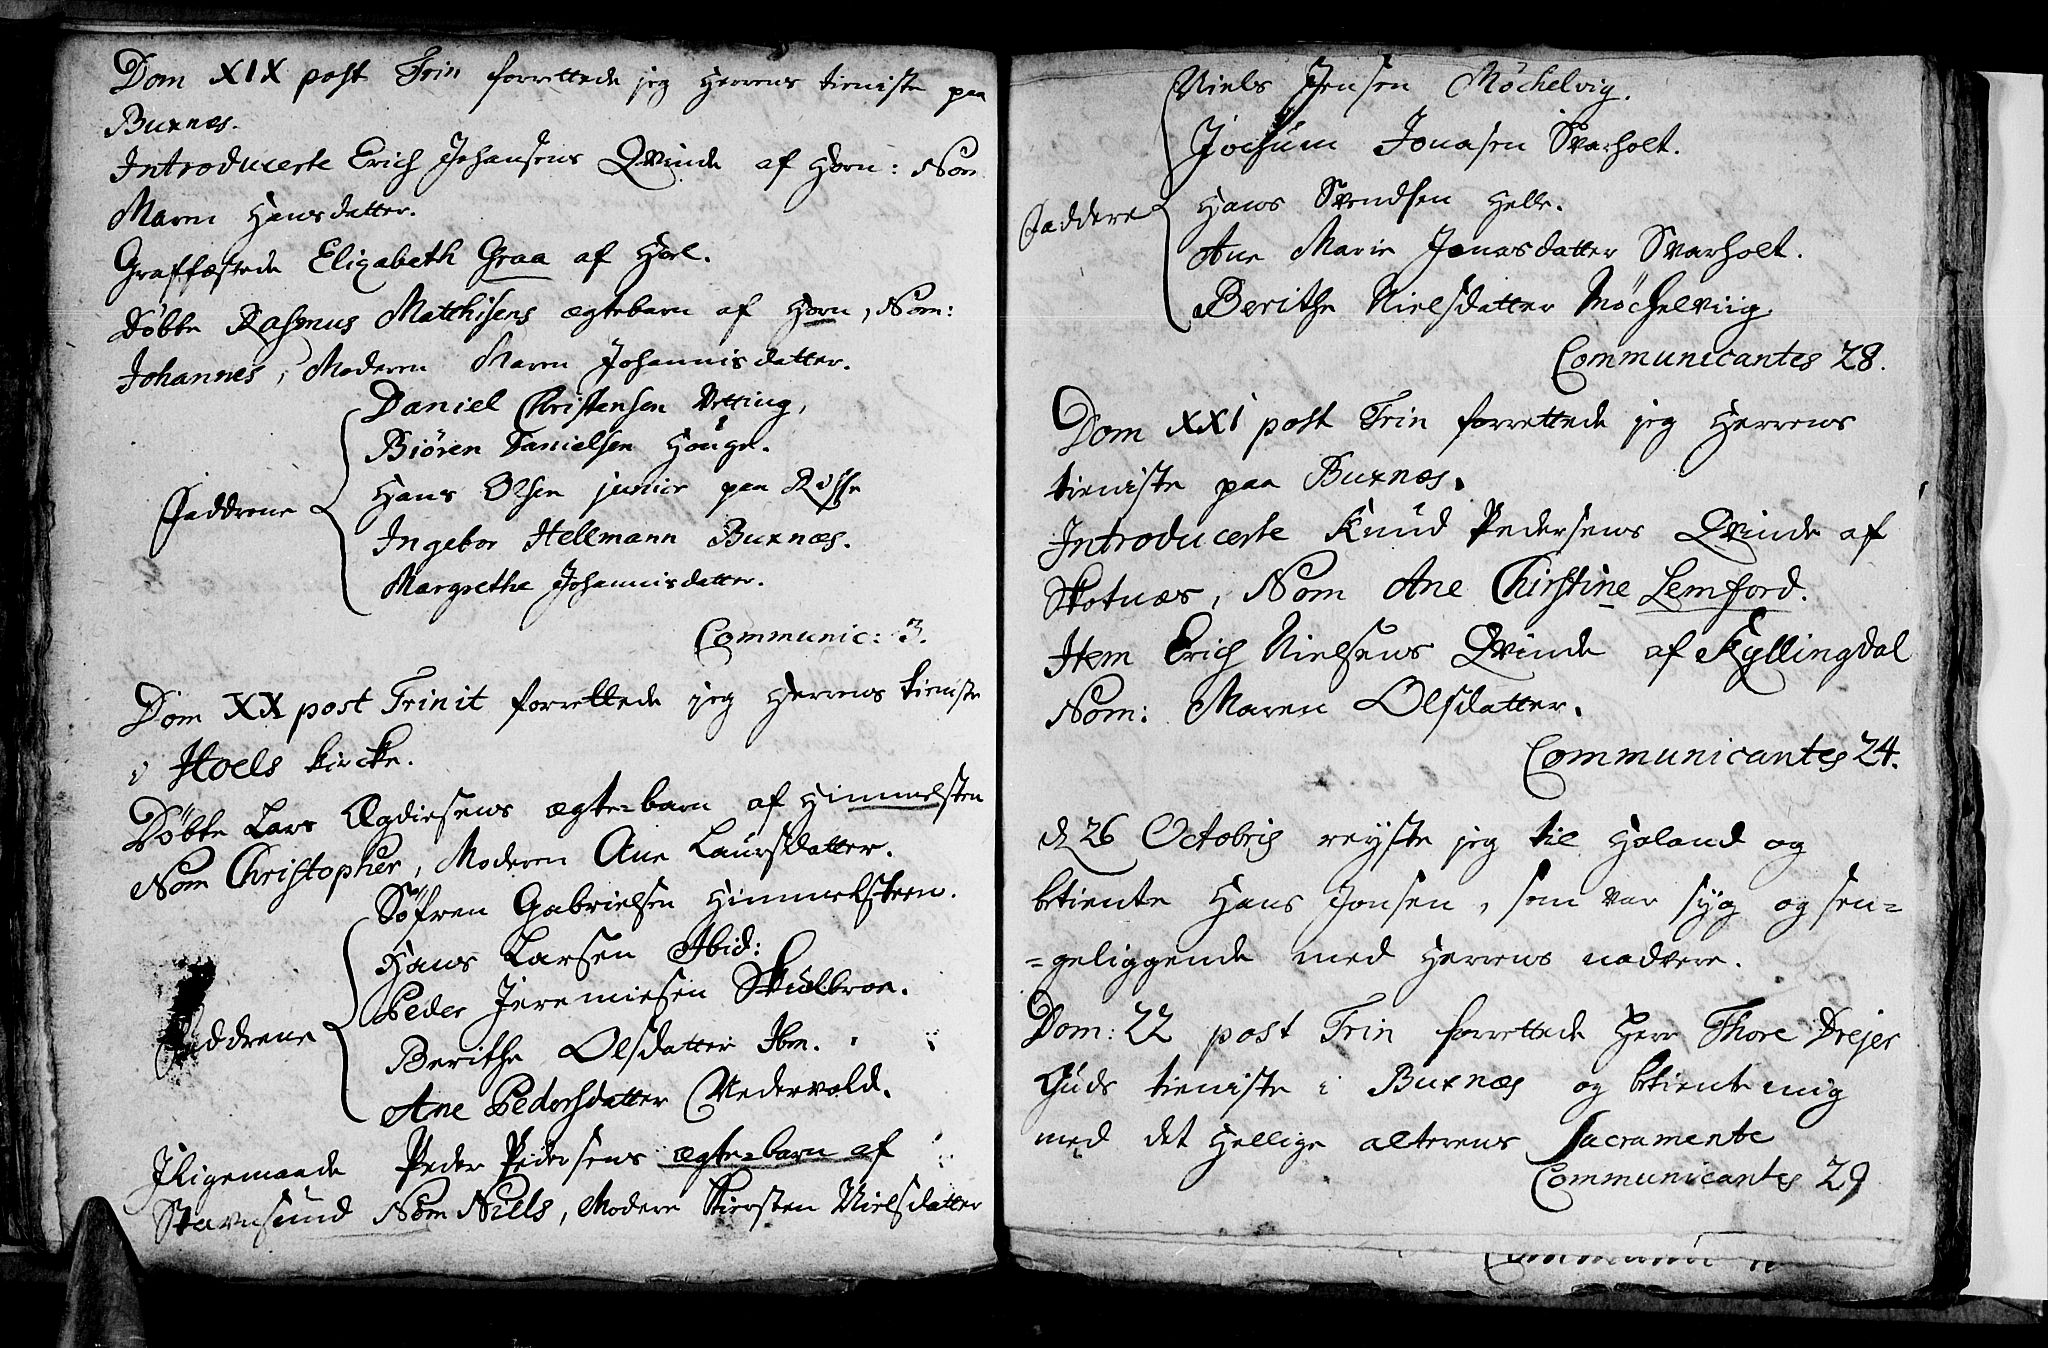 Dom XIX post Trin forrettede jeg Herrens tieniste paa
Buxnæs.
Introducerte Erich Johansens Qvinde af Horn: Nom
Maren Hansdatter.
Graffæstede Elizabeth Graa af Hoel.
Døbte Rasmus Matthisens ægtebarn af Horn, Nom:
Johannes, Moderen Maren Johannisdatter.
Faddrene
Daniel Christensen Vetting,
Biøren Danielsen Houge.
Hans Olsen junior paa Risse
Ingebor Hellmann Buxnæs.
Margrethe Johannisdatter.
Communic: 3.
Dom XX post Trinit forrettede jeg Herrens tieniste
i Hoels kircke.
Døbte Lars Ægdiesens ægte=barn af Himmelsten
Nom Christopher, Moderen Ane Laursdatter.
Faddrene
Søfren Gabrielsen Himmelsteen.
Hans Larsen Ibid:
Peder Jeremiesen Skulbroe.
Berithe Olsdatter Ibm.
Ane Pedersdatter Vedervold.
Jligemaade Peder Pedersens ægte=barn af
Stavnsund Nom Niels, Modere Kiersten Nielsdatter
Faddere
Niels Jensen Möchelvig.
Jochum Jonasen Svarholt.
Hans Svendsen Helle.
Ane Marie Jonasdatter Svarholt.
Berithe Nielsdatter Möchelviig.
Communicantes 28.
Dom XXI post Trin forrettede jeg Herrens
tieniste paa Buxnæs.
Introducerte Knud Pedersens Qvinde af
Skotnæs, Nom Ane Chirstine Lemford.
Item Erich Nielsens Qvinde af Kyllingdal
Nom: Maren Olsdatter.
Communicantes 24.
d 26 Octobris reyste jeg til Holand og
betiente Hans Jonsen, som var syg og sen=
=geliggende med Herrens nadvere.
Dom: 22 post Trin forrettede Herr Thore Drejer
Guds tieniste i Buxnæs og betiente mig
med det Hellige alterens Sacramente
Communicantes 29